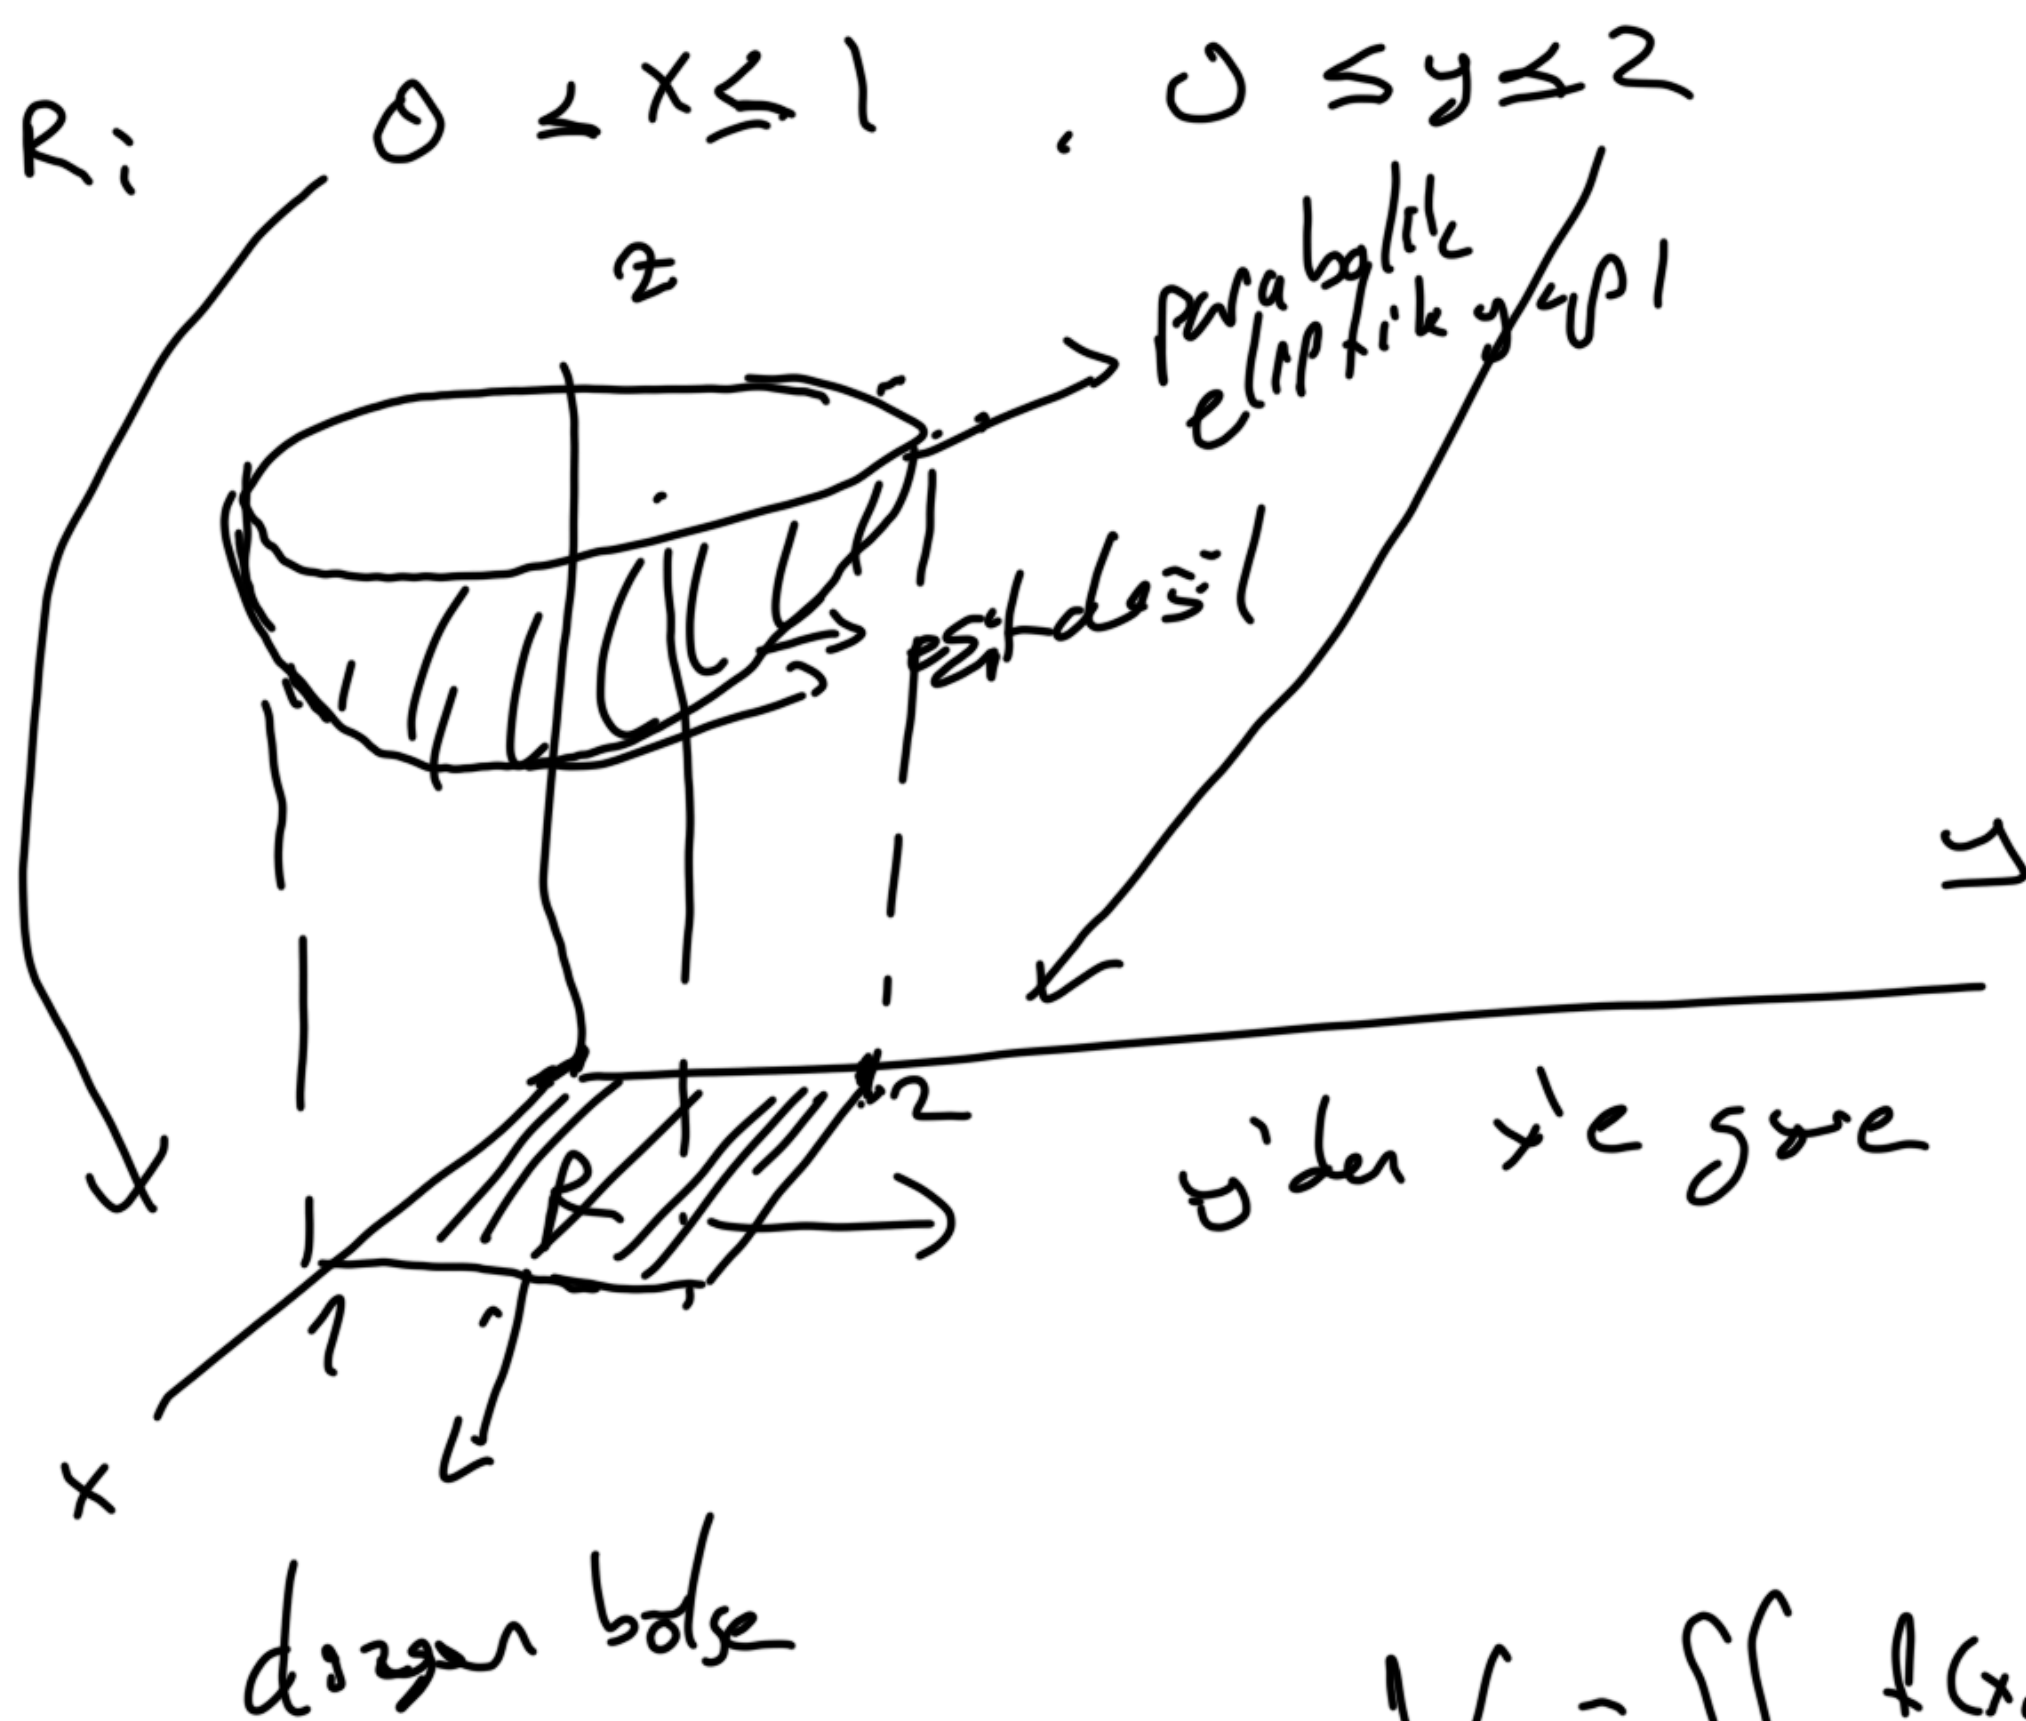 R: 0 ≤ x ≤ 1 , 0 ≤ y ≤ 2
z
parabolik
eliptik yapı
y
2
R
y'den x'e göre
1
x
düzgün bölge
V = ∬ f(x,